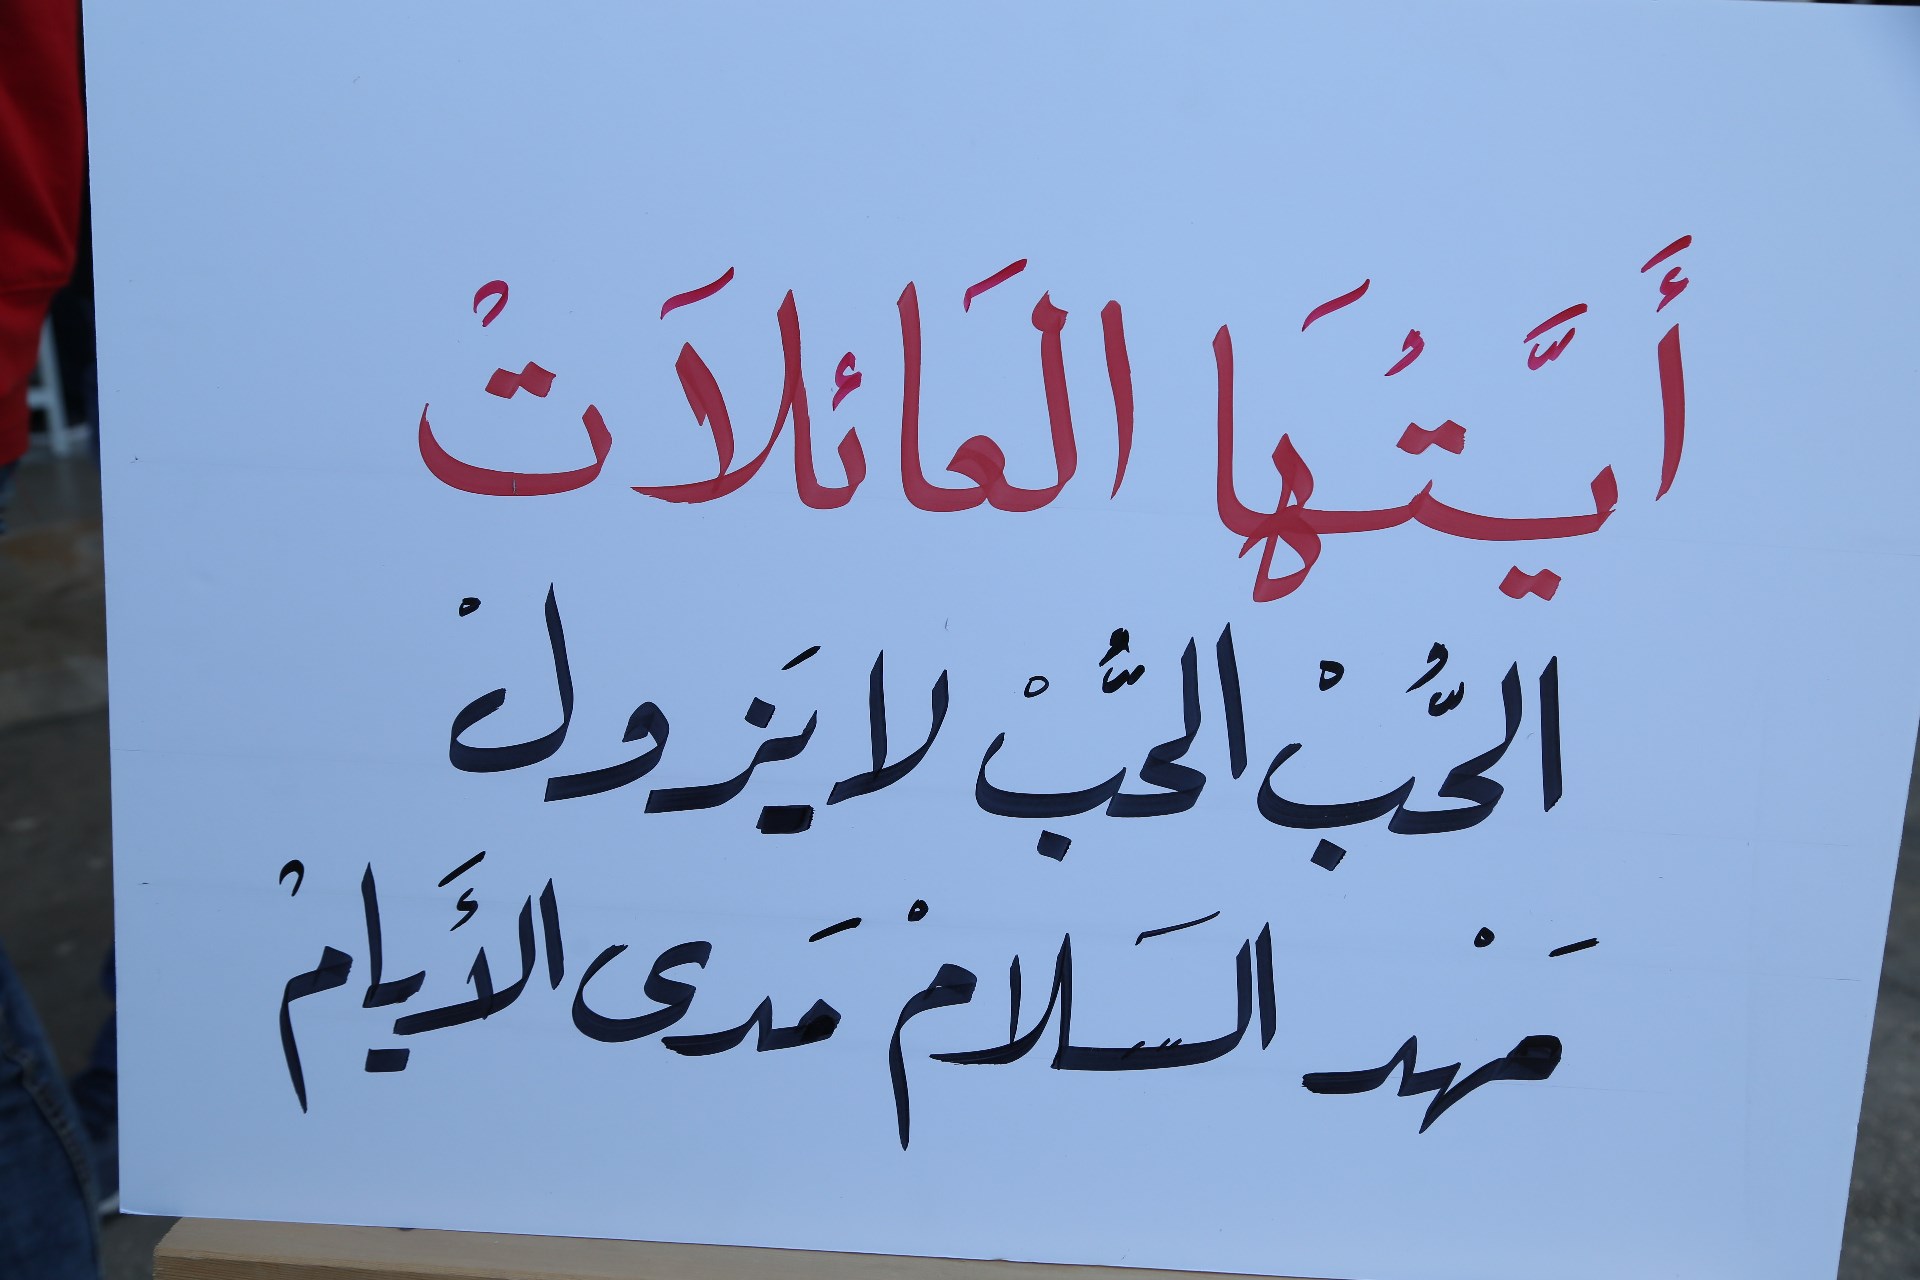 أَيَّتُهَا العَائلاَتْ
الحُّبْ الحُّبْ لا يَزولْ
مَهْد السَلامْ مَدى الأَيامْ